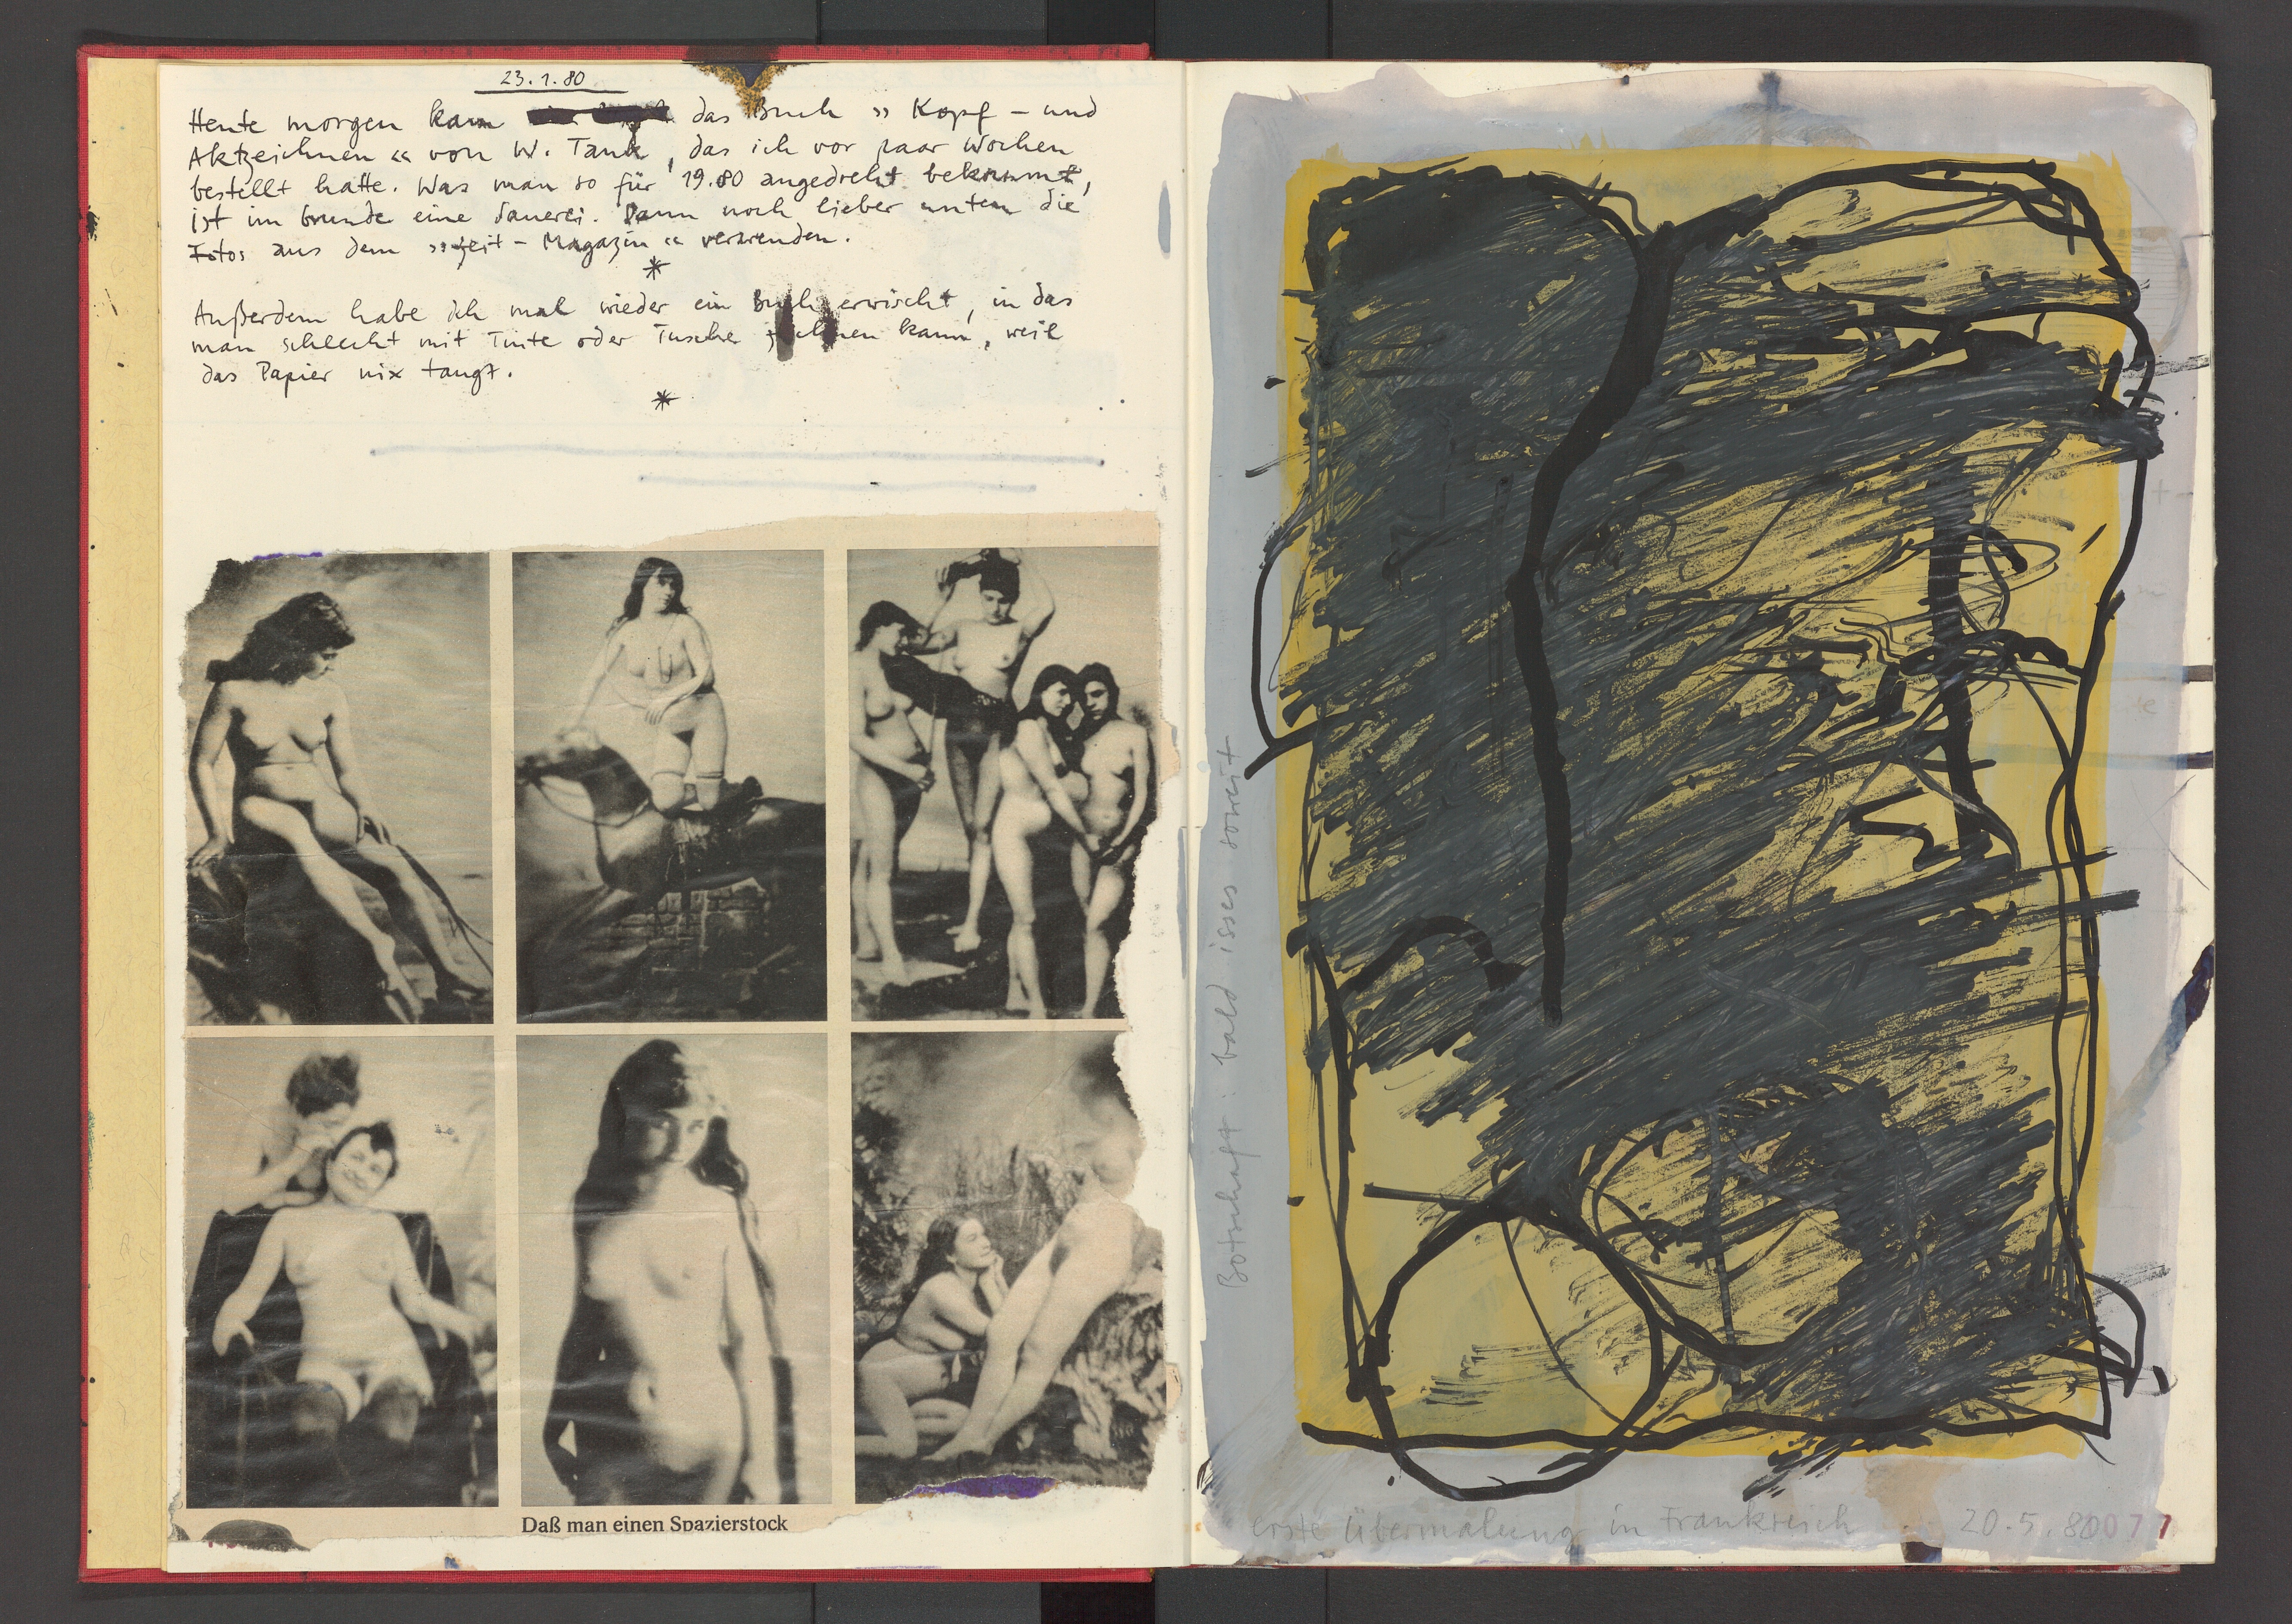 23.1.80
Heute morgen kam das Buch » Kopf – und
Aktzeichnen « von W. Tank, das ich vor paar Wochen
bestellt hatte. Was man so für 19.80 angedreht bekommt,
ist im Grunde eine Sauerei. Dann noch lieber unten die
Fotos aus dem »Zeit – Magazin « verwenden.
*
Außerdem habe ich mal wieder ein Buch erwischt, in das
man schlecht mit Tinte oder Tusche zeichnen kann, weil
das Papier nix taugt.
*
Daß man einen Spazierstock
Botschaft : bald isses soweit
erste Übermalung in Frankreich 20.5.80
077